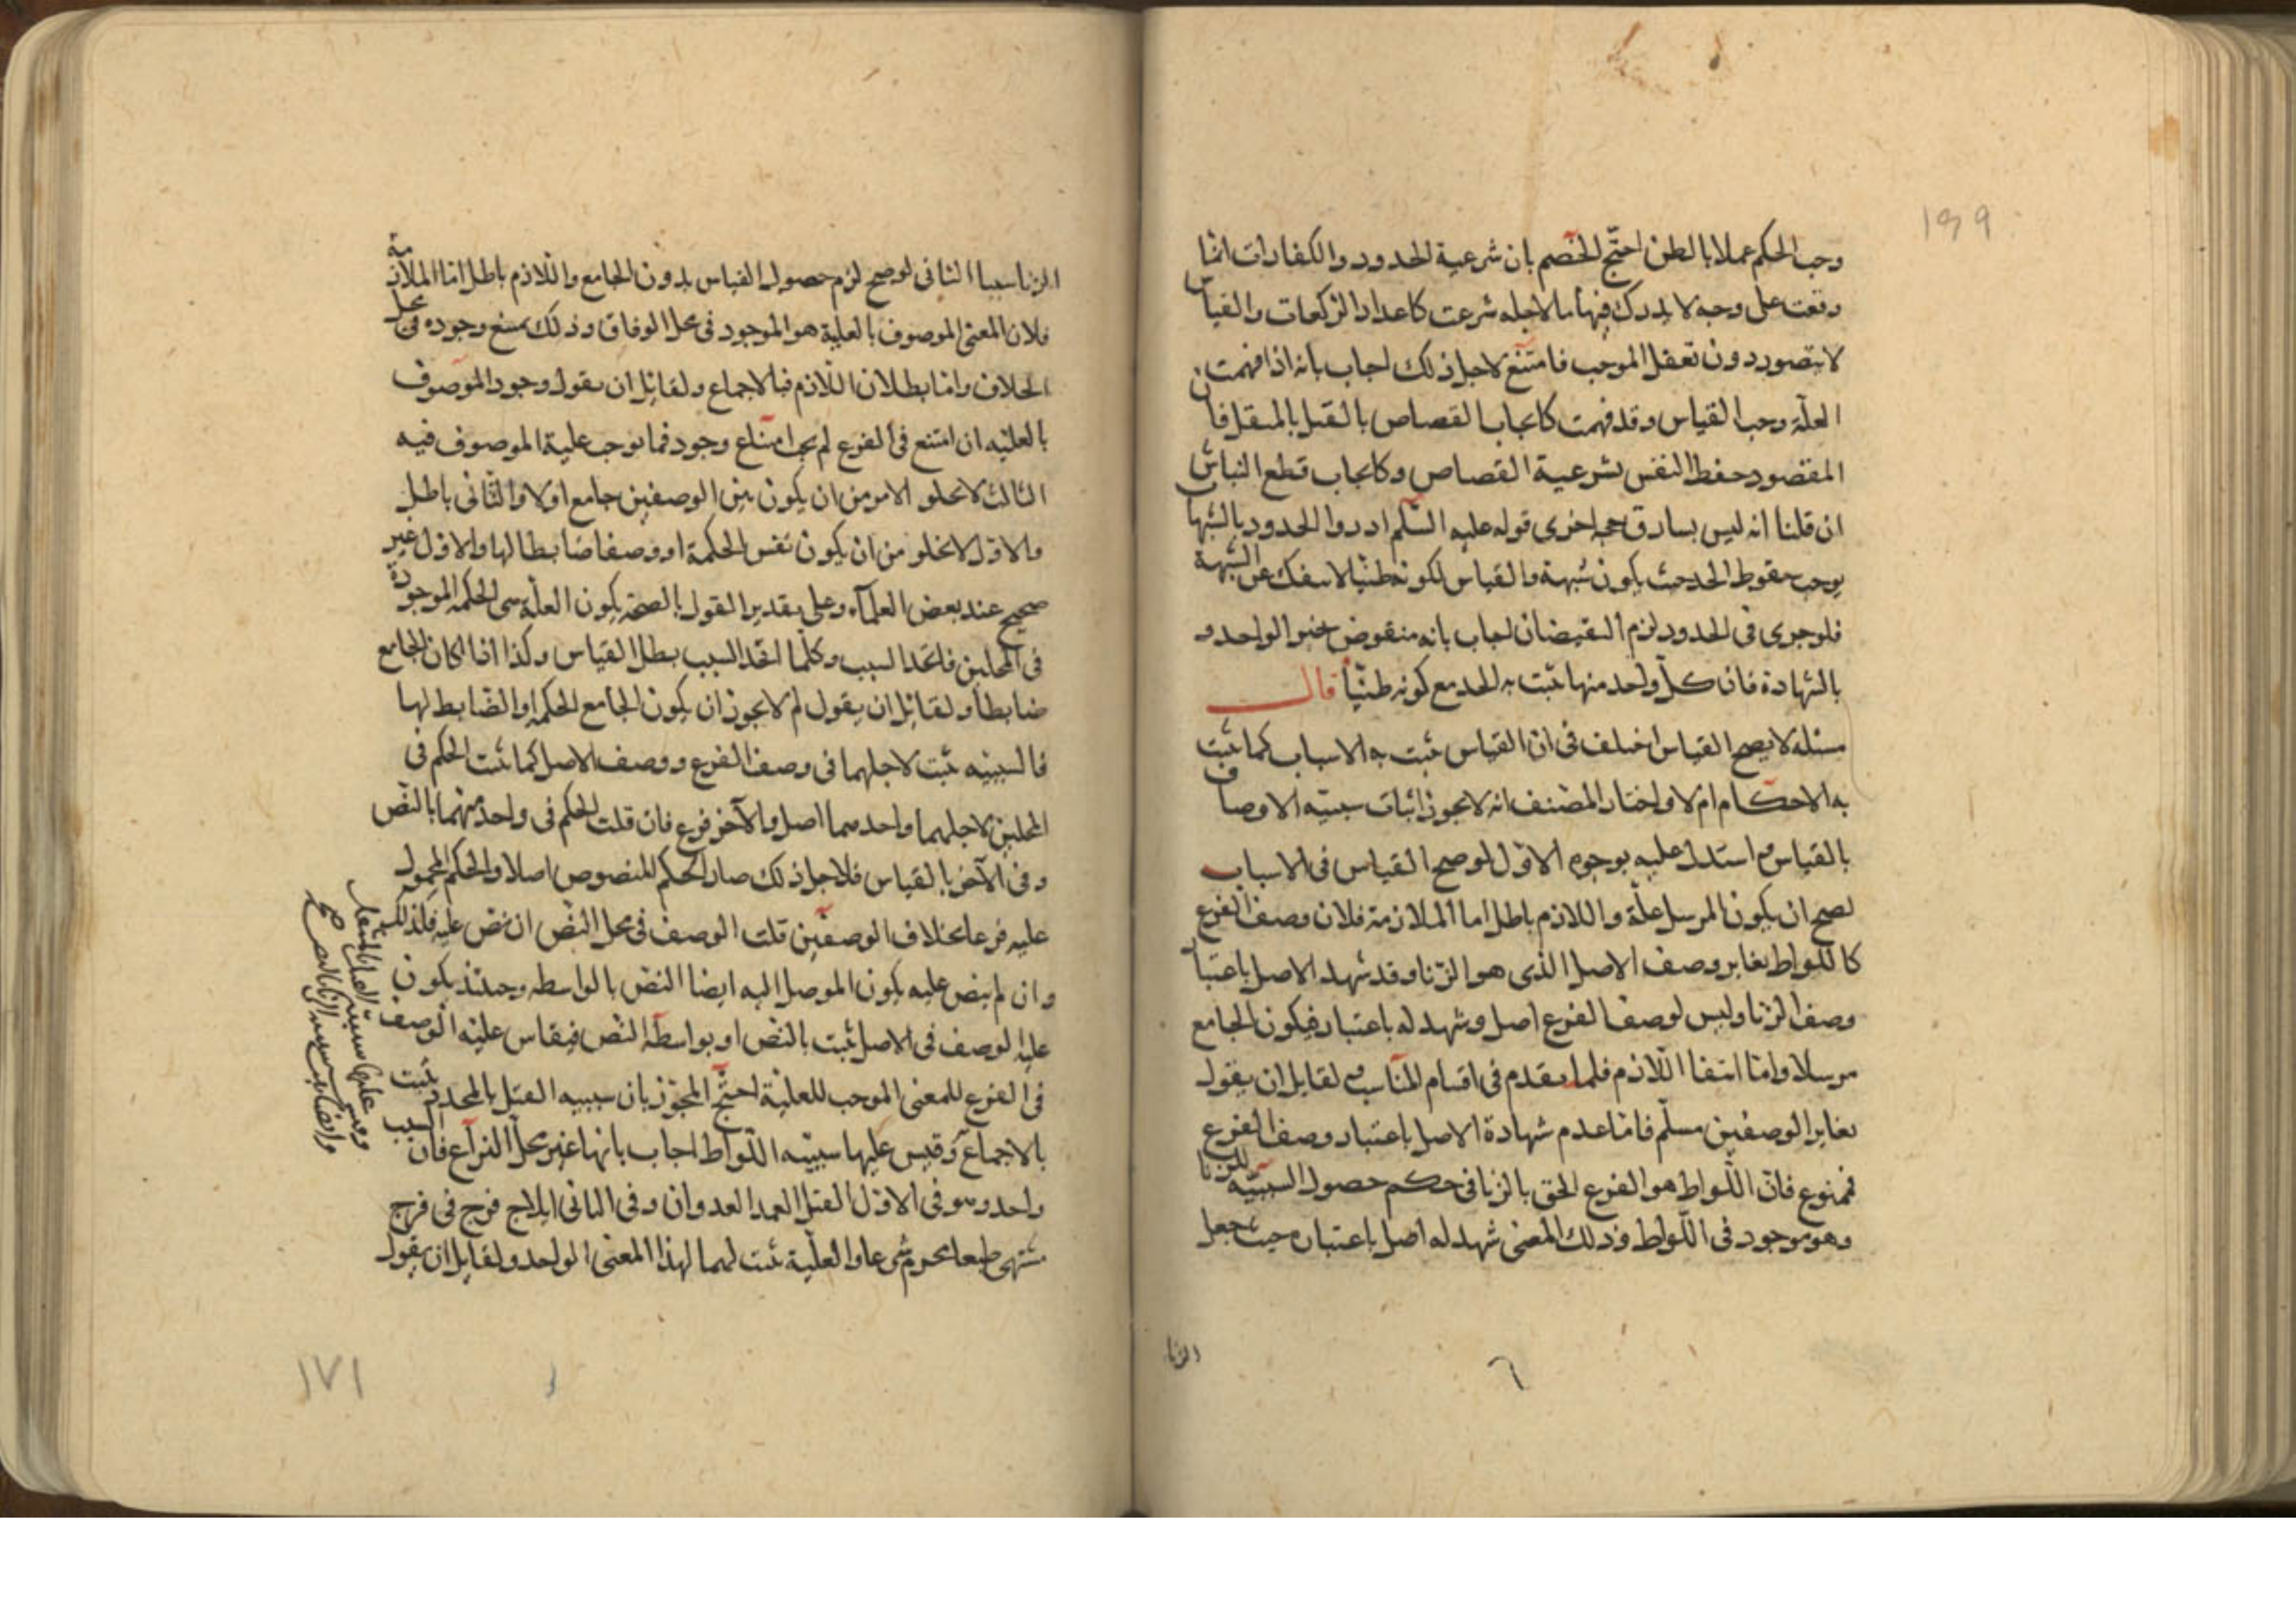 ١٩٩
وجب الحكم عملا بالظن احتج الخصم بان شرعية الحدود والكفارات انما
وقعت على وجه لا يدرك فيها ما لاجله شرعت كاعداد الركعات والقياس
لا يتصور دون تعقل الموجب فامتنع لاجل ذلك اجاب بانه اذا فهمت
العلة وجب القياس وقد فهمت كايجاب القصاص بالقتل بالمثقل فان
المقصود حفظ النفس بشرعية القصاص وكايجاب قطع النباش
ان قلنا انه ليس بسارق حجة اخرى قوله عليه السلم ادروا الحدود بالشبهات
يوجب سقوط الحد حيث يكون شبهة والقياس لكونه ظنيا لا ينفك عن الشبهة
فلو جرى في الحدود لزم النقيضان اجاب بانه منقوض بخبر الواحد و
بالشهادة فان كل واحد منها يثبت به الحد مع كونه ظنيا قال
مسئلة لا يصح القياس اختلف في ان القياس يثبت به الاسباب كما يثبت
به الاحكام ام لا واختار المصنف انه لا يجوز اثبات سببية الاوصاف
بالقياس واستدل عليه بوجوه الاول لو صح القياس في الاسباب
لصح ان يكون المرسل علة واللازم باطل اما الملازمة فلان وصف الفرع
كاللواط يغاير وصف الاصل الذي هو الزنا وقد شهد الاصل باعتبار
وصف الزنا وليس لوصف الفرع اصل وشهد له باعتبار فيكون الجامع
مرسلا واما انتفا اللازم فلما يقدم في اقسام المناسب لقايل ان يقول
تغاير الوصفين مسلم فاما عدم شهادة الاصل باعتبار وصف الفرع
فممنوع فان اللواط هو الفرع الحق بالزنا في حكم حصول السببية للزنا
وهو موجود في اللواط وذلك المعنى شهد له اصل باعتباره حيث جعل
الزنا
٦
الزنا سببا الثاني لو صح لزم حصول القياس بدون الجامع واللازم باطل اما الملازمة
فلان المعنى الموصوف بالعلية هو الموجود في محل الوفاق وذلك يمتنع وجوده في محل
الخلاف واما بطلان اللازم فبالاجماع ولقايل ان يقول وجود الموصوف
بالعلية ان امتنع في الفرع لم يجب امتناع وجود فما يوجب علية الموصوف فيه
الثالث لا يخلو الامر من ان يكون بين الوصفين جامع او لا والثاني باطل
والاول لا يخلو من ان يكون نفس الحكمة او وصفا ضابطا لها والاول غير
صحيح عند بعض العلمآء وعلى تقدير القول بالصحة يكون العلة هي الحكمة الموجودة
في المحلين فاتحد السبب وكلما اتحد السبب بطل القياس وكذا اذا كان الجامع
ضابطا ولقايل ان يقول لم لا يجوز ان يكون الجامع الحكمة او الضابط لها
فالسببيه يثبت لاجلهما في وصف الفرع ووصف الاصل كما يثبت الحكم في
المحلين لاجلهما واحدهما اصل والآخر فرع فان قلت الحكم في واحد منهما بالنص
وفي الآخر بالقياس فلاجل ذلك صار الحكم المنصوص اصلا والحكم المحمول
عليه فرعا بخلاف الوصفين قلت الوصف في محل النص ان نص عليه فلذلك
وان لم ينص عليه يكون الموصل اليه ايضا النص بالواسطه وحينئذ يكون
علية الوصف في الاصل يثبت بالنص او بواسطة النص فيقاس علية الوصف
في الفرع للمعنى الموجب للعلية احتج المجوز بان سببيه القتل بالمحدد يثبت
بالاجماع وقيس عليها سببيه اللواط اجاب بانها غير محل النزاع فان السبب
واحد وهو في الاول القتل العمد العدوان وفي الثاني ايلاج فرج في فرج
مشتهى طبعا محرم شرعا والعلية يثبت لهما لهذا المعنى الواحد ولقايل ان يقول
وقيس عليها سببية القتل بالمثقل
١٧١